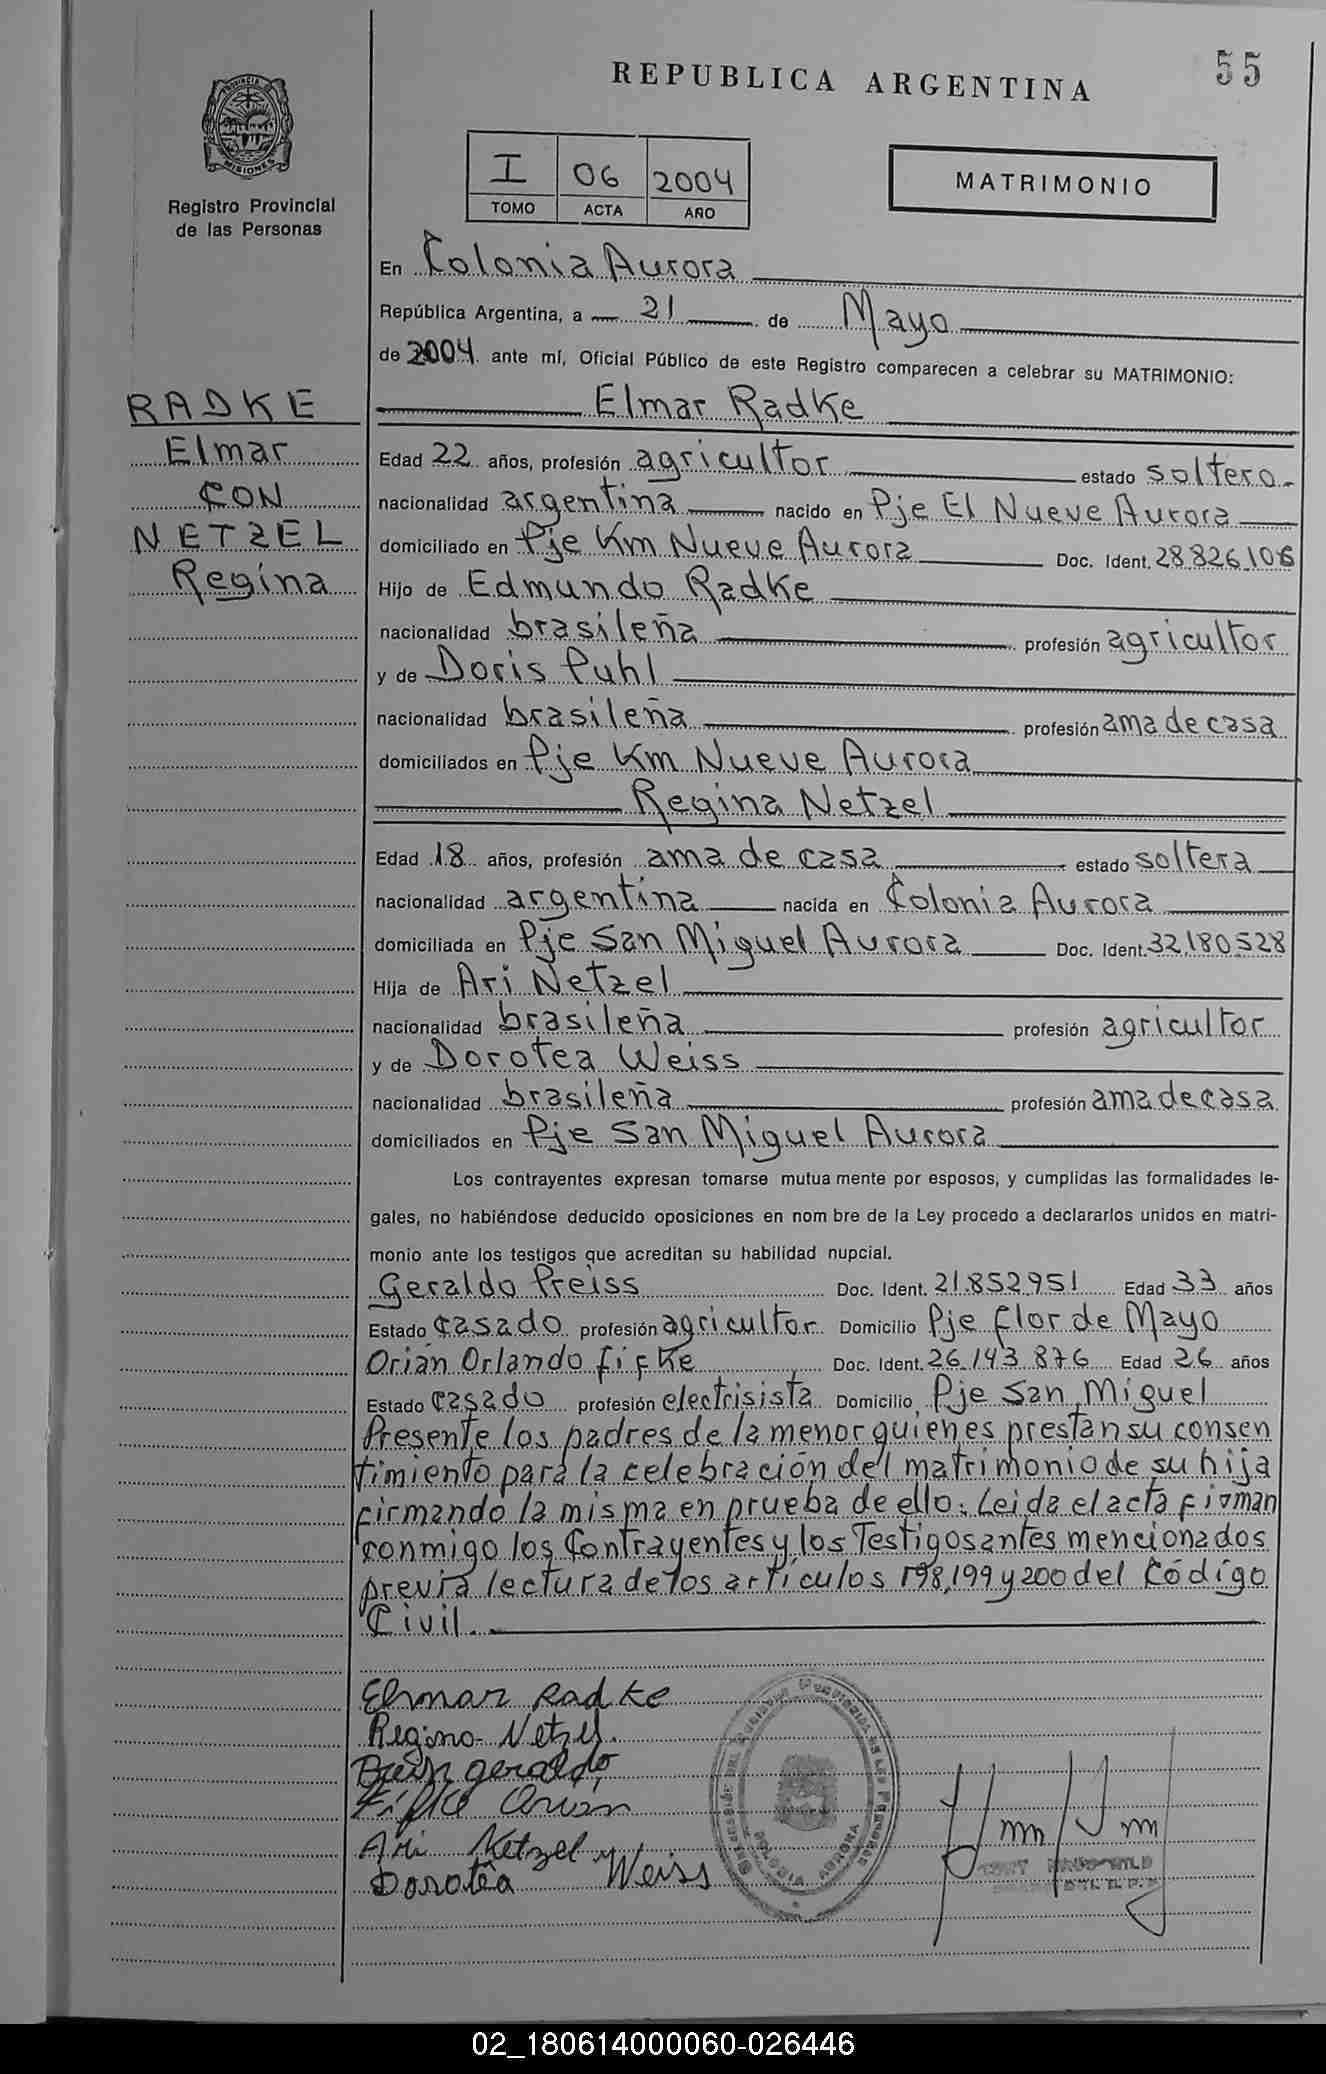 REPUBLICA ARGENTINA
55
PROVINCIA DE MISIONES
Registro Provincial
de las Personas
I 06 2004
TOMO ACTA AÑO
MATRIMONIO
En Colonia Aurora
República Argentina, a 21 de Mayo
de 2004 ante mí, Oficial Público de este Registro comparecen a celebrar su MATRIMONIO:
RADKE
Elmar
CON
NETZEL
Regina
Elmar Radke
Edad 22 años, profesión agricultor estado soltero
nacionalidad argentina nacido en Pje El Nueve Aurora
domiciliado en Pje Km Nueve Aurora Doc. Ident. 28.826.106
Hijo de Edmundo Radke
nacionalidad brasileña profesión agricultor
y de Doris Puhl
nacionalidad brasileña profesión ama de casa
domiciliados en Pje Km Nueve Aurora
Regina Netzel
Edad 18 años, profesión ama de casa estado soltera
nacionalidad argentina nacida en Colonia Aurora
domiciliada en Pje San Miguel Aurora Doc. Ident. 32.180.528
Hija de Ari Netzel
nacionalidad brasileña profesión agricultor
y de Dorotea Weiss
nacionalidad brasileña profesión ama de casa
domiciliados en Pje San Miguel Aurora
Los contrayentes expresan tomarse mutua mente por esposos, y cumplidas las formalidades le-
gales, no habiéndose deducido oposiciones en nom bre de la Ley procedo a declararlos unidos en matri-
monio ante los testigos que acreditan su habilidad nupcial.
Geraldo Preiss Doc. Ident. 21.852.951 Edad 33 años
Estado casado profesión agricultor Domicilio Pje Flor de Mayo
Orian Orlando Fifke Doc. Ident. 26.143.876 Edad 26 años
Estado casado profesión electrisista Domicilio Pje San Miguel
Presente los padres de la menor quienes prestan su consen
timiento para la celebración del matrimonio de su hija
firmando la misma en prueba de ello. Leida el acta firman
conmigo los Contrayentes y los Testigos antes mencionados
previa lectura de los artículos 198,199 y 200 del Código
Civil.
Elmar Radke
Regina Netzel
geraldo
Fifke Orian
Ari Netzel
Dorotêa Weiss
COLONIA AURORA
02_180614000060-026446